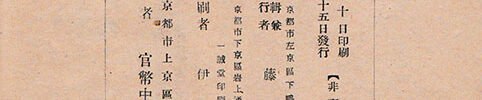 十日印刷
十五日發行
【非
京都市左京區下鴨
輯兼
行者
藤
京都市下京區岩上通
一誠堂印刷
刷者
伊
京都市上京區
者
官幣中